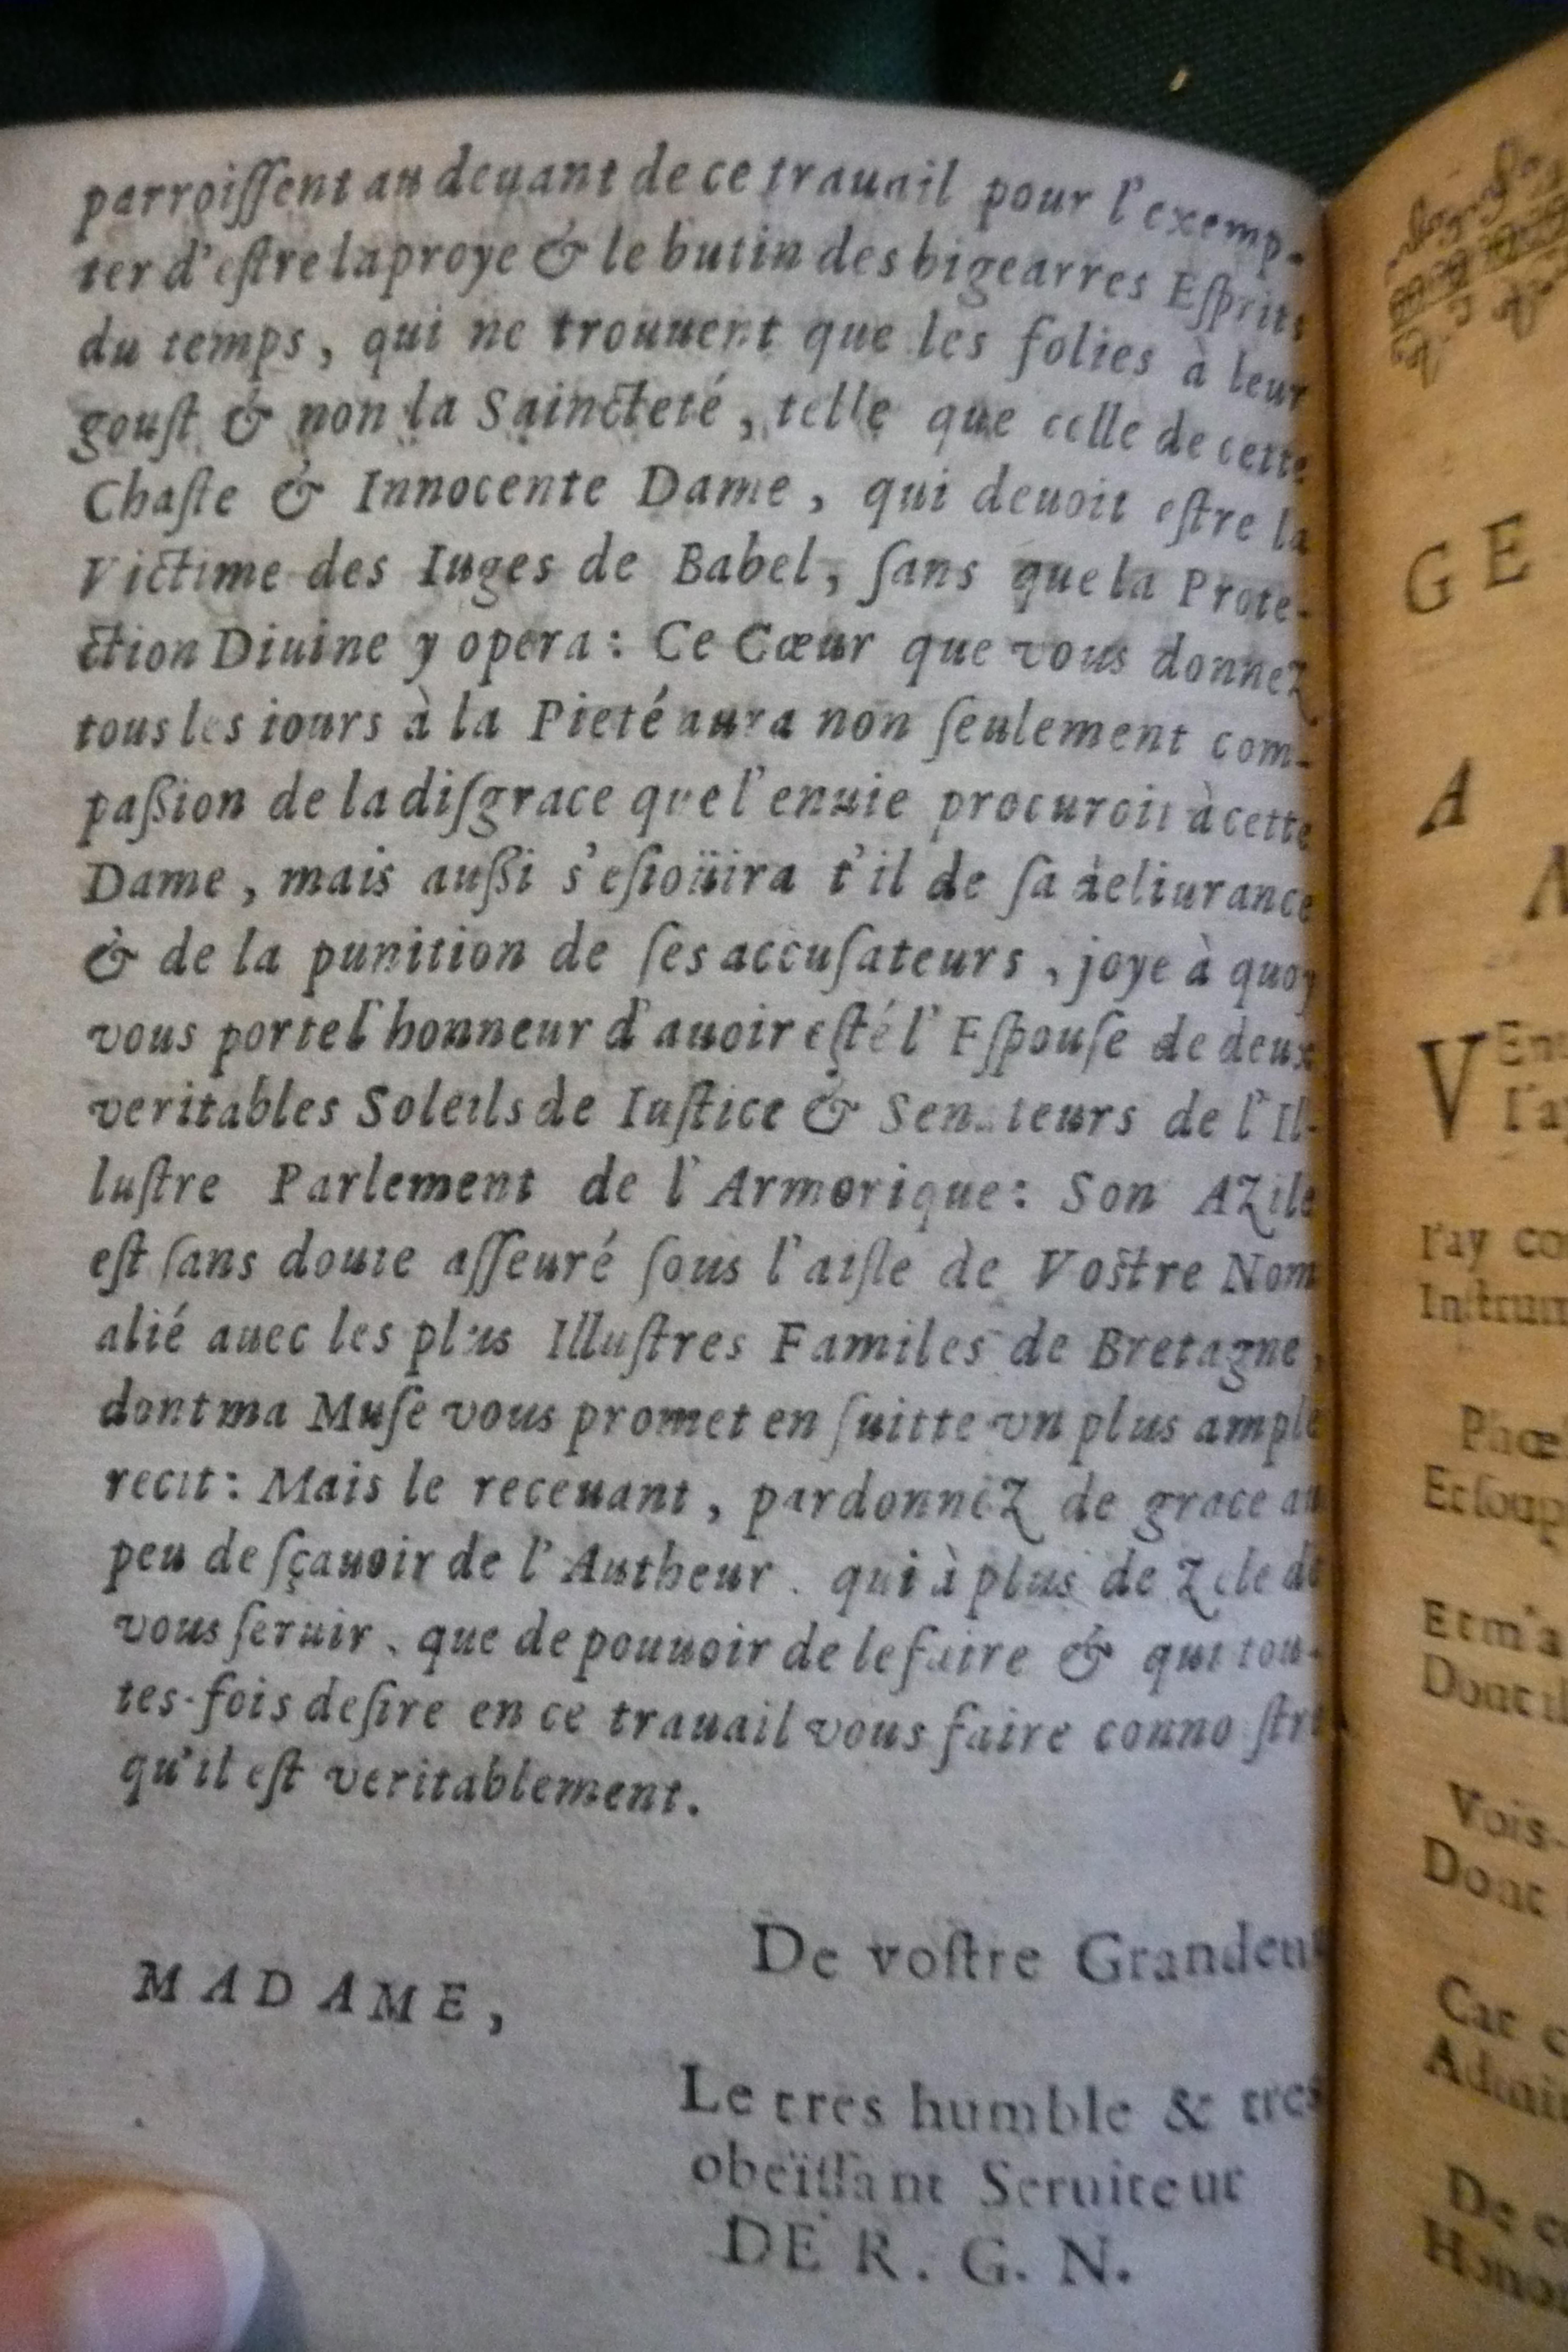 parroiſſent au deuant de ce trauail pour l'exemp-
ter d'eſtre la proye & le butin des bigearres Eſprits
du temps, qui ne trouuent que les folies à leur
gouſt & non la Sainćteté, telle que celle de cette
Chaſte & Innocente Dame, qui deuoit eſtre la
Victime des Iuges de Babel, ſans que la Prote-
ction Diuine y opera: Ce Cœur que vous donnez
tous les iours à la Pieté aura non ſeulement com-
paſsion de la diſgrace que l'enuie procuroit à cette
Dame, mais auſsi s'eſioüira t'il de ſa deliurance
& de la punition de ſes accuſateurs, joye à quoy
vous porte l'honneur d'auoir eſté l'Eſpouſe de deux
veritables Soleils de Iuſtice & Senateurs de l'Il-
luſtre Parlement de l'Armorique: Son Azile
eſt ſans doute aſſeuré ſous l'aiſle de Voſtre Nom
alié auec les plus Illuſtres Familes de Bretagne,
dont ma Muſe vous promet en ſuitte vn plus ample
recit: Mais le receuant, pardonnez de grace au
peu de ſçauoir de l'Autheur. qui à plus de Zele de
vous ſeruir, que de pouuoir de le faire & qui tou-
tes-fois deſire en ce trauail vous faire conno ſtre
qu'il eſt veritablement.
De voſtre Grandeur
MADAME,
Le tres humble & tres
obeïſſant Seruiteur
DE R. G. N.
GE
A
V En
I'ay
I'ay co
Inſtrum
Phœ
Et ſoup
Et m'a
Dont il
Vois-
Dont
Car
Admi
De
Honor